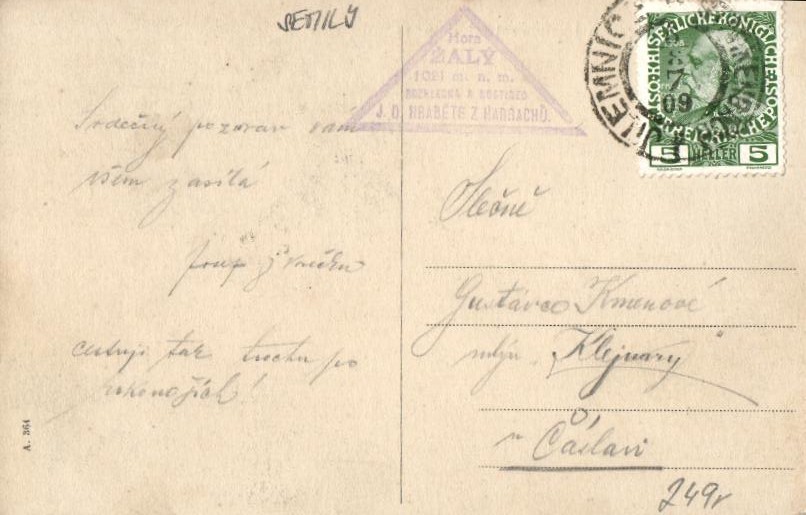 SEMILY
Hora
ŽALÝ
1021 m. n. m.
ROZHLEDNA A HOSTINEC
J. O. HRABĚTE Z HARRACHŮ.
KAISERLICHE KÖNIGLICHE
ÖSTERREICHISCHE POST
1908
5 HELLER 5
7
09
Srdečný pozdrav vám
všem zasílá
Josef
cestuji tak trochu po
Krkonoších!
Slečně
Kmenové
mlýn „Klejnary"
u Čáslavi
249r
A. 364